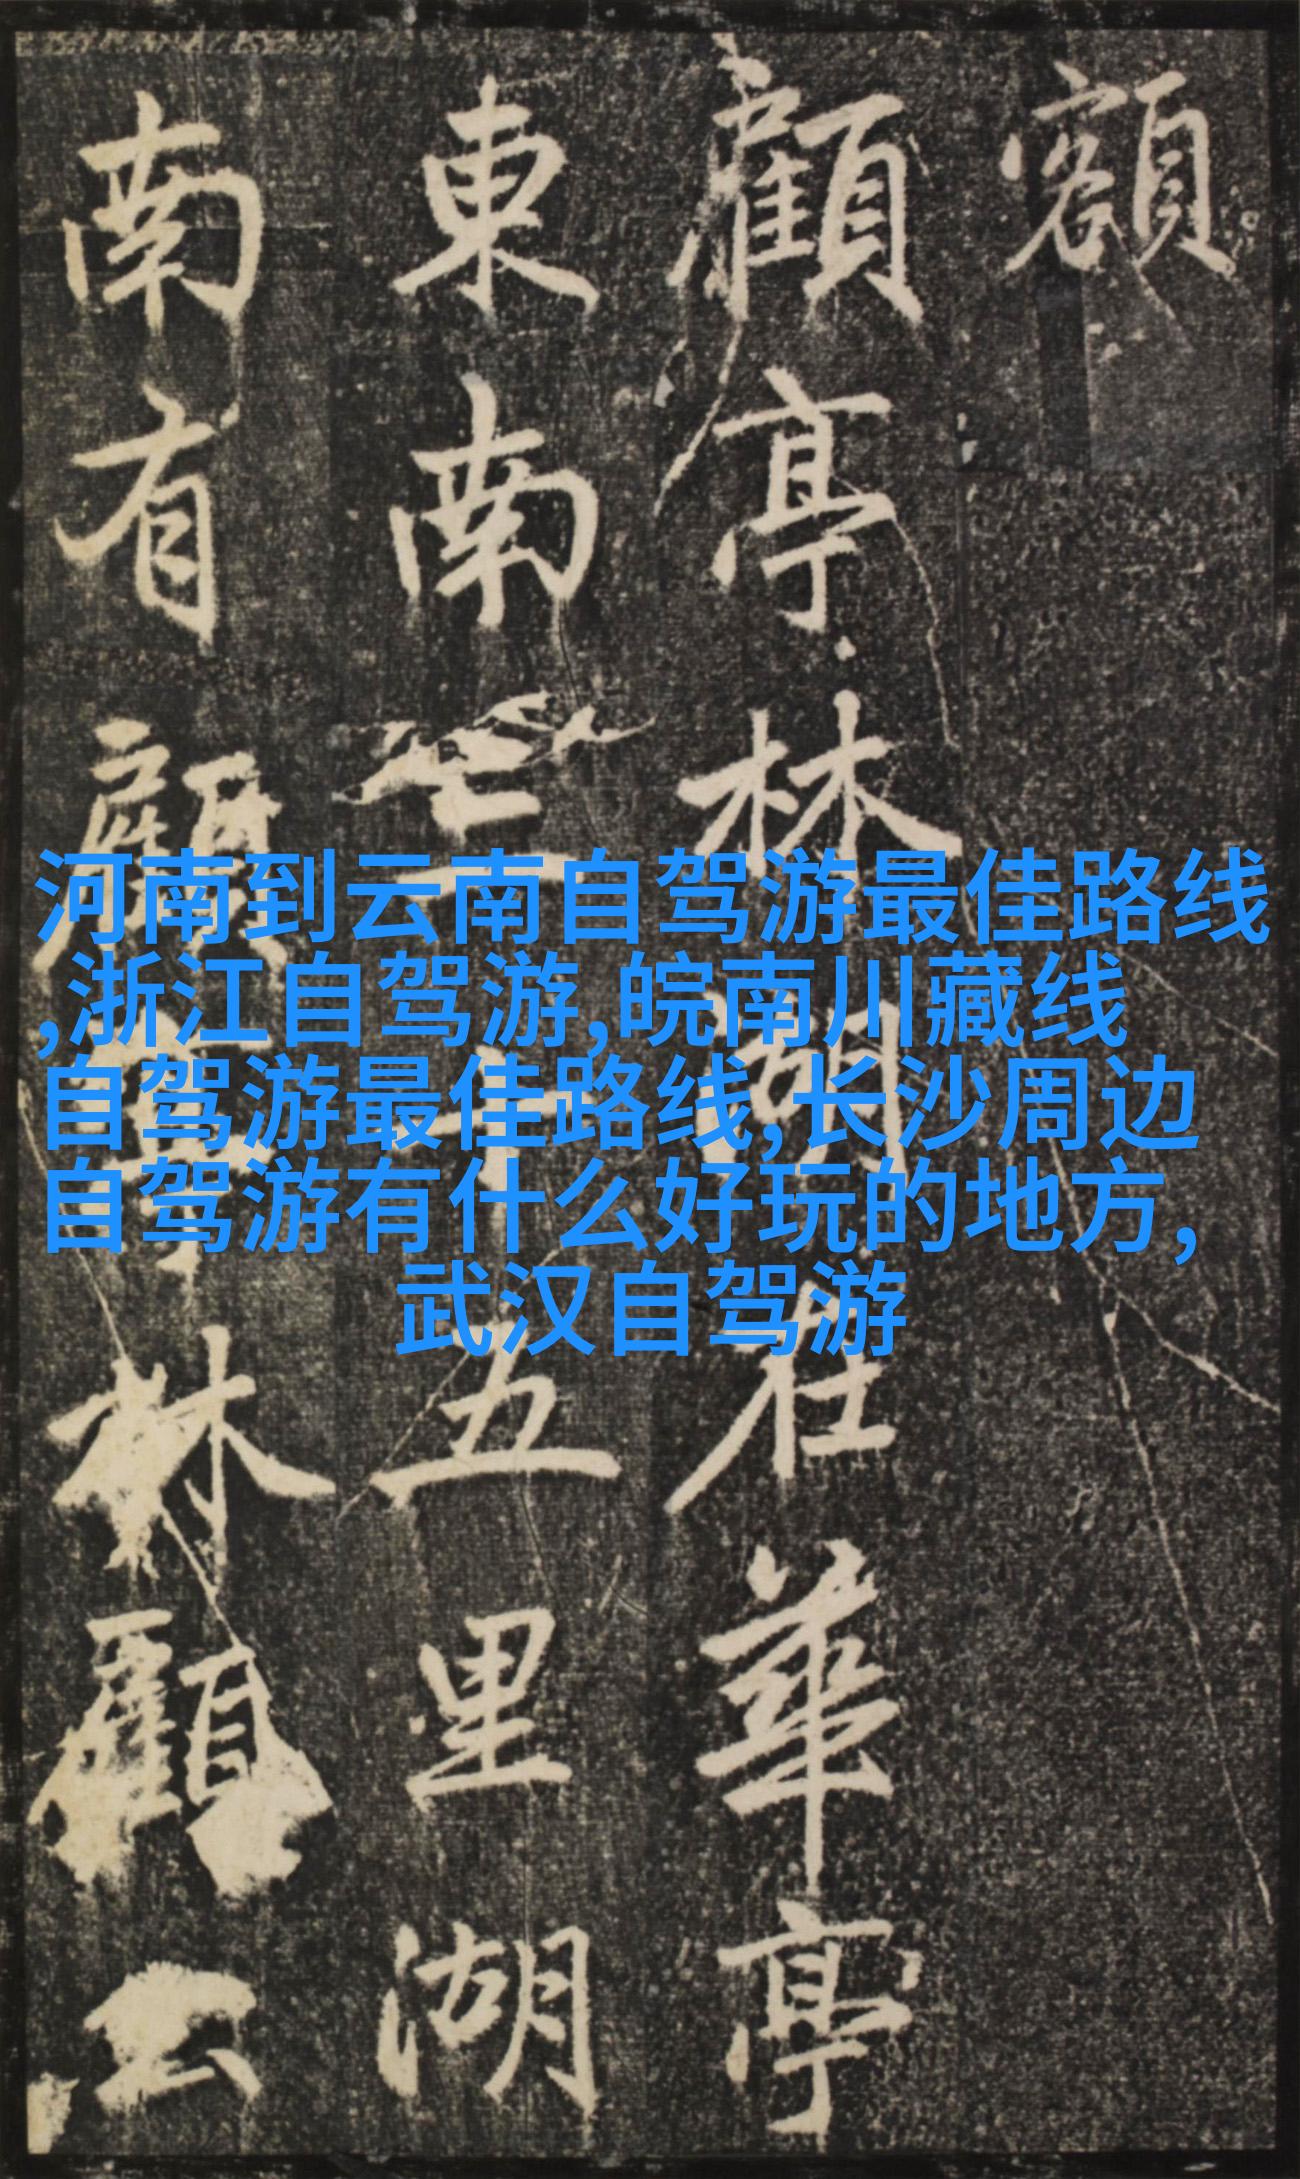 額
顧亭林湖在華亭
東南三十五里湖
南有顧野王林顧云
河南到云南自驾游最佳路线
,浙江自驾游,皖南川藏线
自驾游最佳路线,长沙周边
自驾游有什么好玩的地方,
武汉自驾游